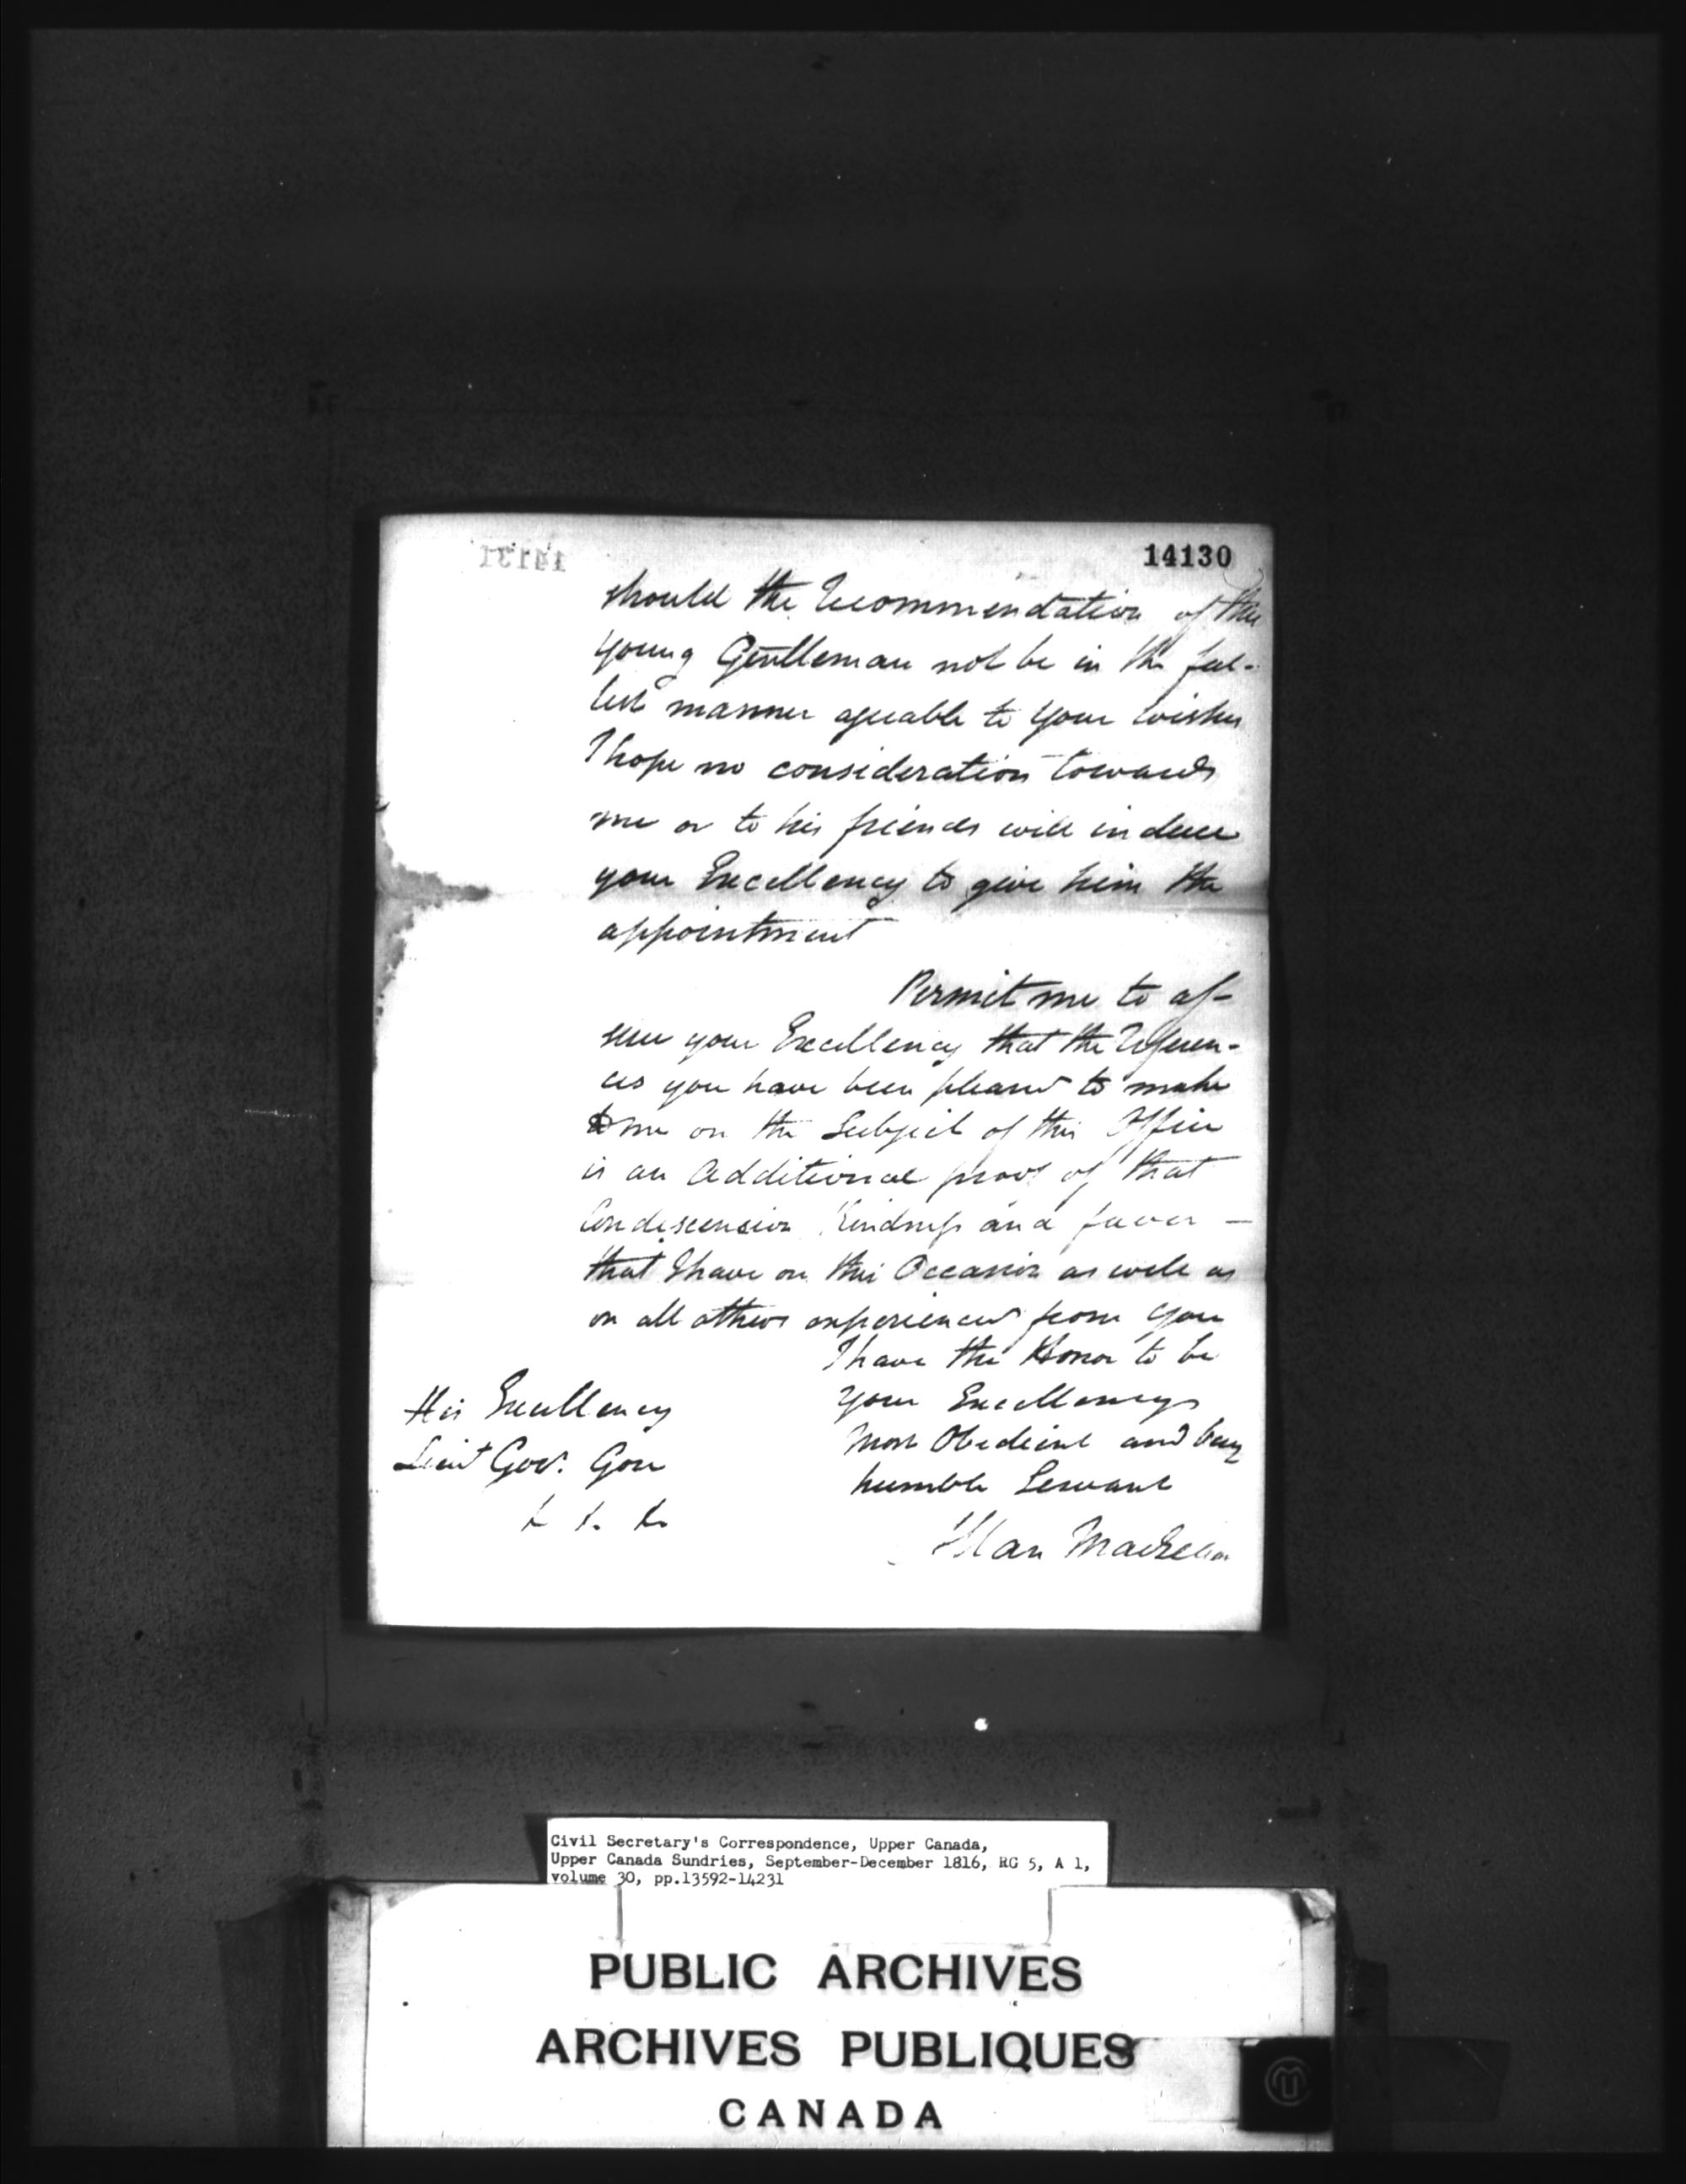 14131
14130
should the Recommendation of this
young Gentleman not be in the ful-
lest manner agreable to your wishes
I hope no consideration towards
me or to his friends will induce
your Excellency to give him the
appointment
Permit me to as-
sure your Excellency that the Referen-
ces you have been pleased to make
to me on the Subject of this Office
is an Additional proof of that
Condescension Kindness and favor —
that I have on this Occasion as well as
on all others experienced from you
I have the Honor to be
your Excellencys
Most Obedient and very
humble Servant
Allan MacLean
His Excellency
Lieut Gov. Gore
& &. &.
Civil Secretary's Correspondence, Upper Canada,
Upper Canada Sundries, September-December 1816, RG 5, A 1,
volume 30, pp.13592-14231
PUBLIC ARCHIVES
ARCHIVES PUBLIQUES
CANADA